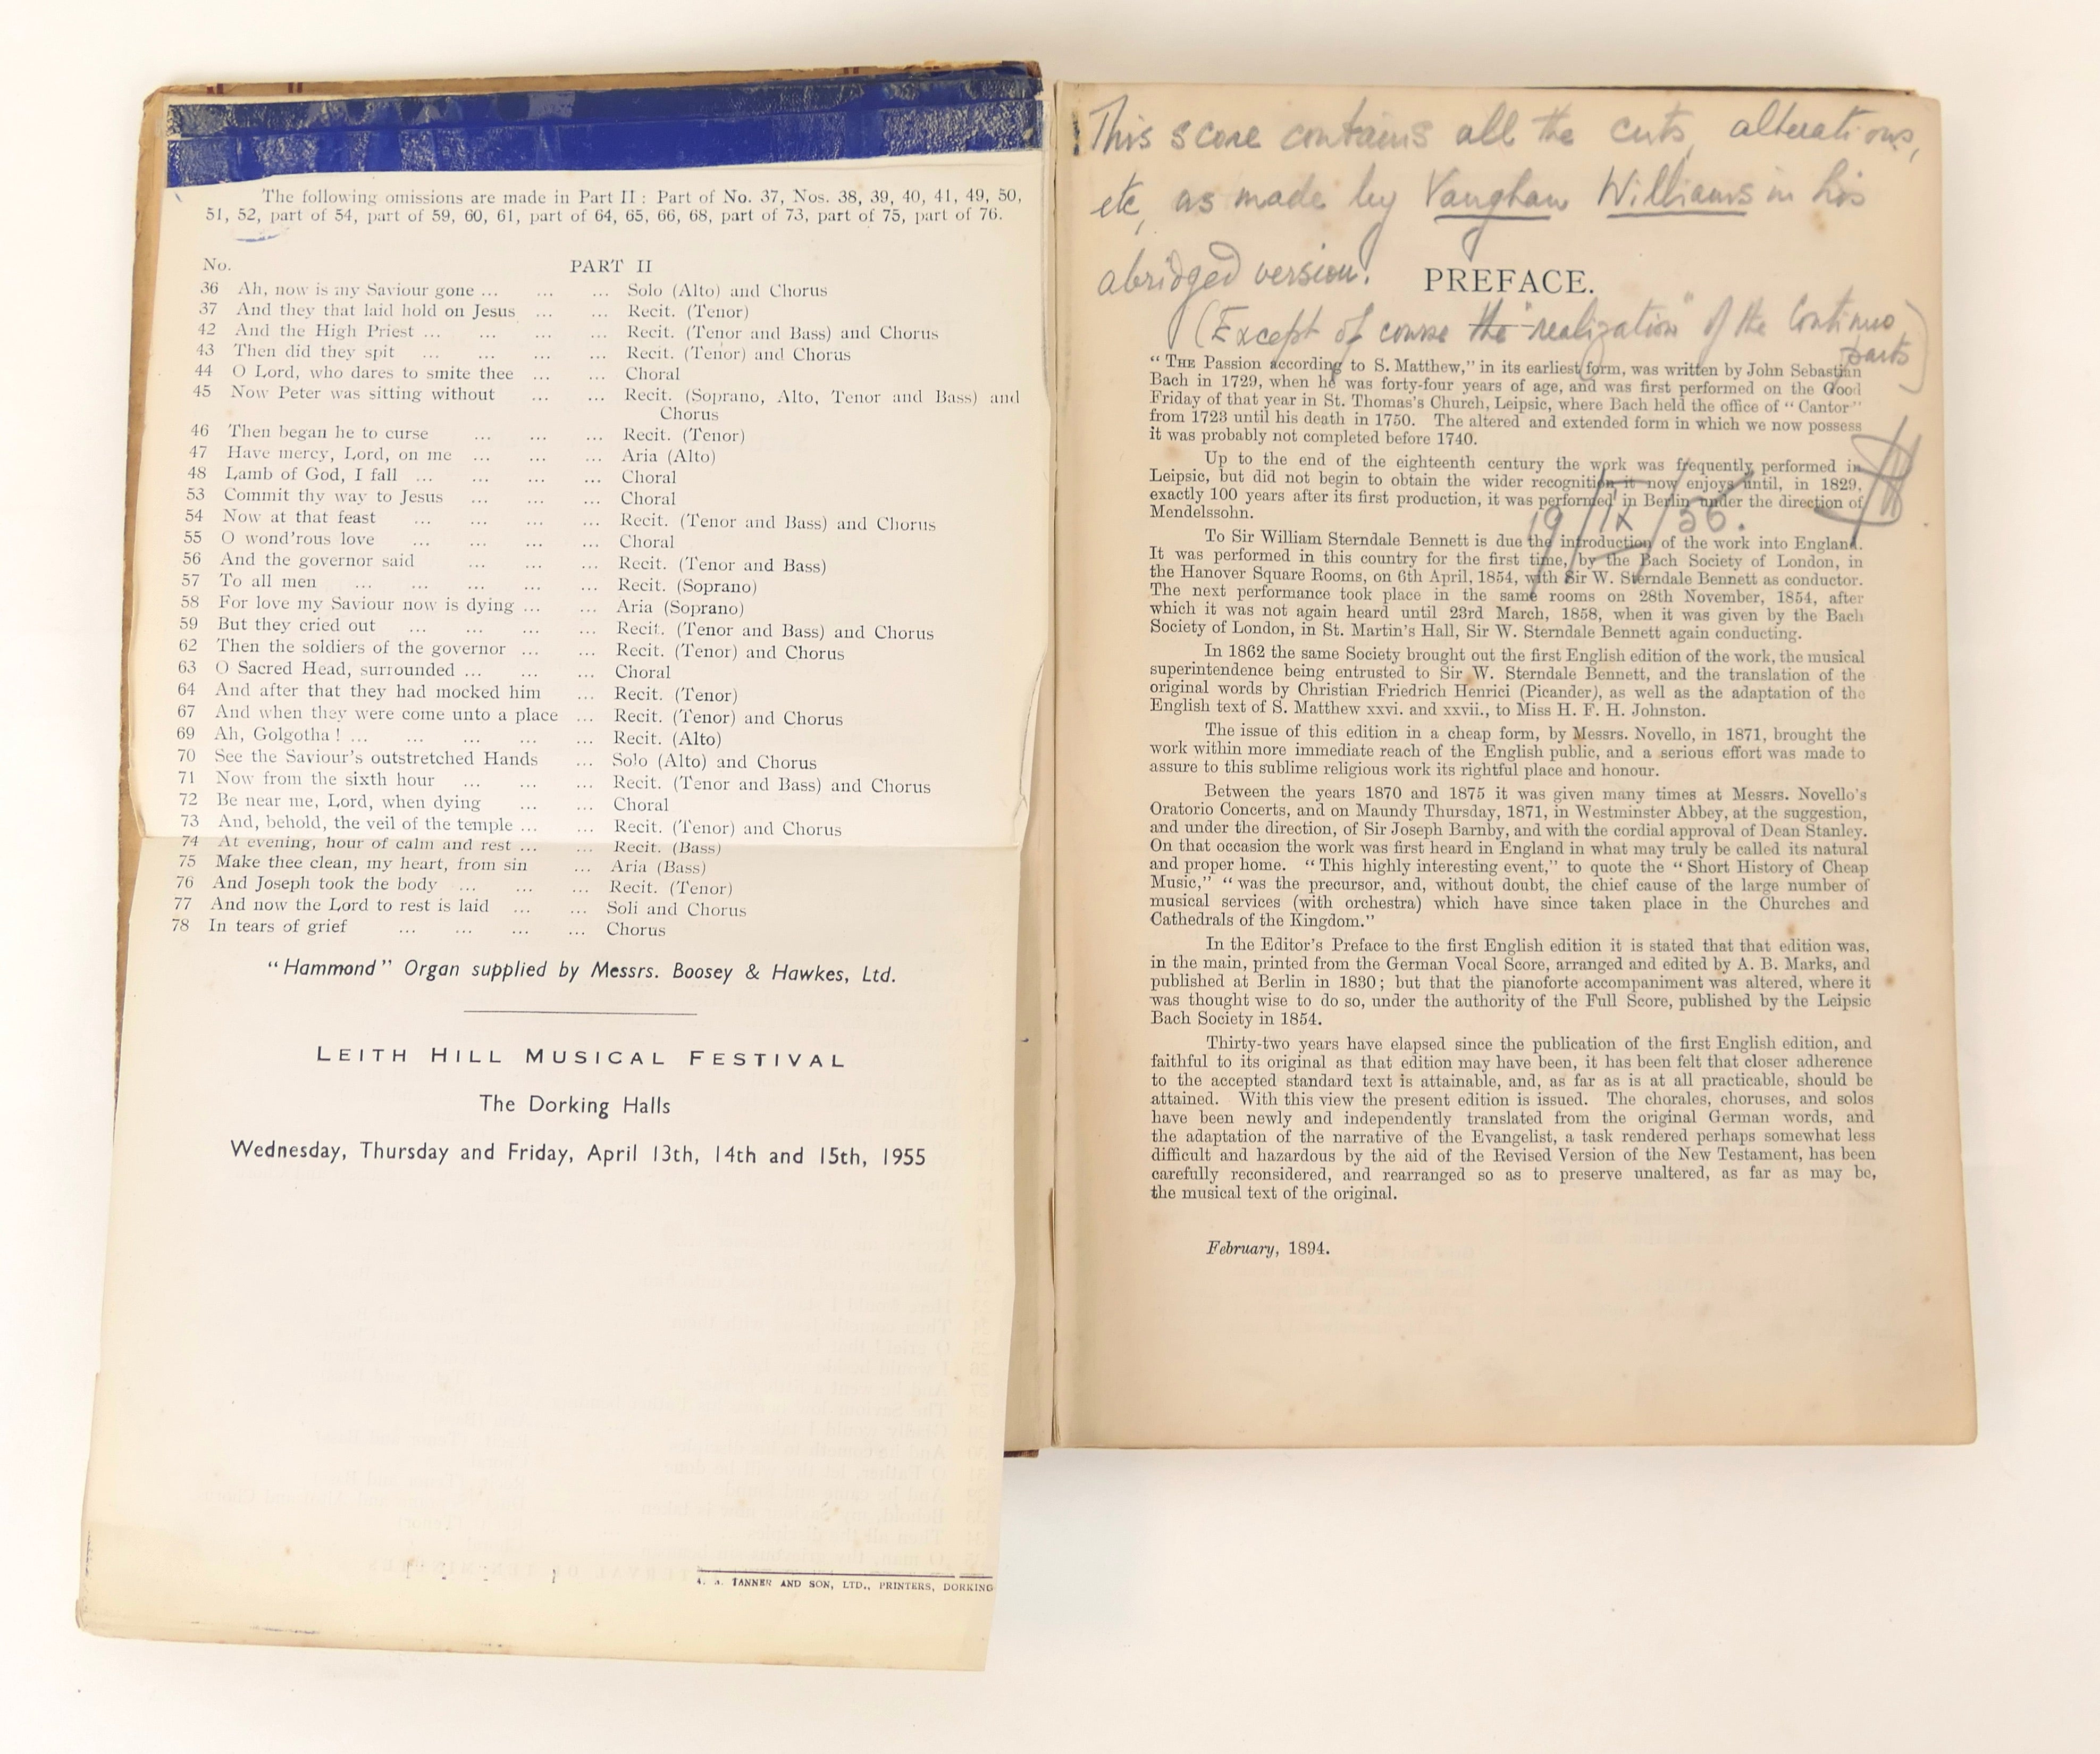 The following omissions are made in Part II : Part of No. 37, Nos. 38, 39, 40, 41, 49, 50,
51, 52, part of 54, part of 59, 60, 61, part of 64, 65, 66, 68, part of 73, part of 75, part of 76.
No. PART II
36 Ah, now is my Saviour gone ... ... ... Solo (Alto) and Chorus
37 And they that laid hold on Jesus ... ... Recit. (Tenor)
42 And the High Priest ... ... ... ... Recit. (Tenor and Bass) and Chorus
43 Then did they spit ... ... ... ... Recit. (Tenor) and Chorus
44 O Lord, who dares to smite thee ... ... Choral
45 Now Peter was sitting without ... ... Recit. (Soprano, Alto, Tenor and Bass) and
Chorus
46 Then began he to curse ... ... ... Recit. (Tenor)
47 Have mercy, Lord, on me ... ... ... Aria (Alto)
48 Lamb of God, I fall ... ... ... ... Choral
53 Commit thy way to Jesus ... ... ... Choral
54 Now at that feast ... ... ... ... Recit. (Tenor and Bass) and Chorus
55 O wond'rous love ... ... ... ... Choral
56 And the governor said ... ... ... Recit. (Tenor and Bass)
57 To all men ... ... ... ... ... Recit. (Soprano)
58 For love my Saviour now is dying ... ... Aria (Soprano)
59 But they cried out ... ... ... ... Recit. (Tenor and Bass) and Chorus
62 Then the soldiers of the governor ... ... Recit. (Tenor) and Chorus
63 O Sacred Head, surrounded ... ... ... Choral
64 And after that they had mocked him ... Recit. (Tenor)
67 And when they were come unto a place ... Recit. (Tenor) and Chorus
69 Ah, Golgotha ! ... ... ... ... ... Recit. (Alto)
70 See the Saviour's outstretched Hands ... Solo (Alto) and Chorus
71 Now from the sixth hour ... ... ... Recit. (Tenor and Bass) and Chorus
72 Be near me, Lord, when dying ... ... Choral
73 And, behold, the veil of the temple ... ... Recit. (Tenor) and Chorus
74 At evening, hour of calm and rest ... ... Recit. (Bass)
75 Make thee clean, my heart, from sin ... Aria (Bass)
76 And Joseph took the body ... ... ... Recit. (Tenor)
77 And now the Lord to rest is laid ... ... Soli and Chorus
78 In tears of grief ... ... ... ... Chorus
"Hammond" Organ supplied by Messrs. Boosey & Hawkes, Ltd.
LEITH HILL MUSICAL FESTIVAL
The Dorking Halls
Wednesday, Thursday and Friday, April 13th, 14th and 15th, 1955
TANNER AND SON, LTD., PRINTERS, DORKING
This score contains all the cuts, alterations,
etc, as made by Vaughan Williams in his
abridged version.
PREFACE.
(Except of course the "realization" of the Continuo
parts)
"THE Passion according to S. Matthew," in its earliest form, was written by John Sebastian
Bach in 1729, when he was forty-four years of age, and was first performed on the Good
Friday of that year in St. Thomas's Church, Leipsic, where Bach held the office of "Cantor"
from 1723 until his death in 1750. The altered and extended form in which we now possess
it was probably not completed before 1740.
Up to the end of the eighteenth century the work was frequently performed in
Leipsic, but did not begin to obtain the wider recognition it now enjoys until, in 1829,
exactly 100 years after its first production, it was performed in Berlin under the direction of
Mendelssohn.
19/IX/56.
To Sir William Sterndale Bennett is due the introduction of the work into England.
It was performed in this country for the first time, by the Bach Society of London, in
the Hanover Square Rooms, on 6th April, 1854, with Sir W. Sterndale Bennett as conductor.
The next performance took place in the same rooms on 28th November, 1854, after
which it was not again heard until 23rd March, 1858, when it was given by the Bach
Society of London, in St. Martin's Hall, Sir W. Sterndale Bennett again conducting.
In 1862 the same Society brought out the first English edition of the work, the musical
superintendence being entrusted to Sir W. Sterndale Bennett, and the translation of the
original words by Christian Friedrich Henrici (Picander), as well as the adaptation of the
English text of S. Matthew xxvi. and xxvii., to Miss H. F. H. Johnston.
The issue of this edition in a cheap form, by Messrs. Novello, in 1871, brought the
work within more immediate reach of the English public, and a serious effort was made to
assure to this sublime religious work its rightful place and honour.
Between the years 1870 and 1875 it was given many times at Messrs. Novello's
Oratorio Concerts, and on Maundy Thursday, 1871, in Westminster Abbey, at the suggestion,
and under the direction, of Sir Joseph Barnby, and with the cordial approval of Dean Stanley.
On that occasion the work was first heard in England in what may truly be called its natural
and proper home. "This highly interesting event," to quote the "Short History of Cheap
Music," "was the precursor, and, without doubt, the chief cause of the large number of
musical services (with orchestra) which have since taken place in the Churches and
Cathedrals of the Kingdom."
In the Editor's Preface to the first English edition it is stated that that edition was,
in the main, printed from the German Vocal Score, arranged and edited by A. B. Marks, and
published at Berlin in 1830; but that the pianoforte accompaniment was altered, where it
was thought wise to do so, under the authority of the Full Score, published by the Leipsic
Bach Society in 1854.
Thirty-two years have elapsed since the publication of the first English edition, and
faithful to its original as that edition may have been, it has been felt that closer adherence
to the accepted standard text is attainable, and, as far as is at all practicable, should be
attained. With this view the present edition is issued. The chorales, choruses, and solos
have been newly and independently translated from the original German words, and
the adaptation of the narrative of the Evangelist, a task rendered perhaps somewhat less
difficult and hazardous by the aid of the Revised Version of the New Testament, has been
carefully reconsidered, and rearranged so as to preserve unaltered, as far as may be,
the musical text of the original.
February, 1894.